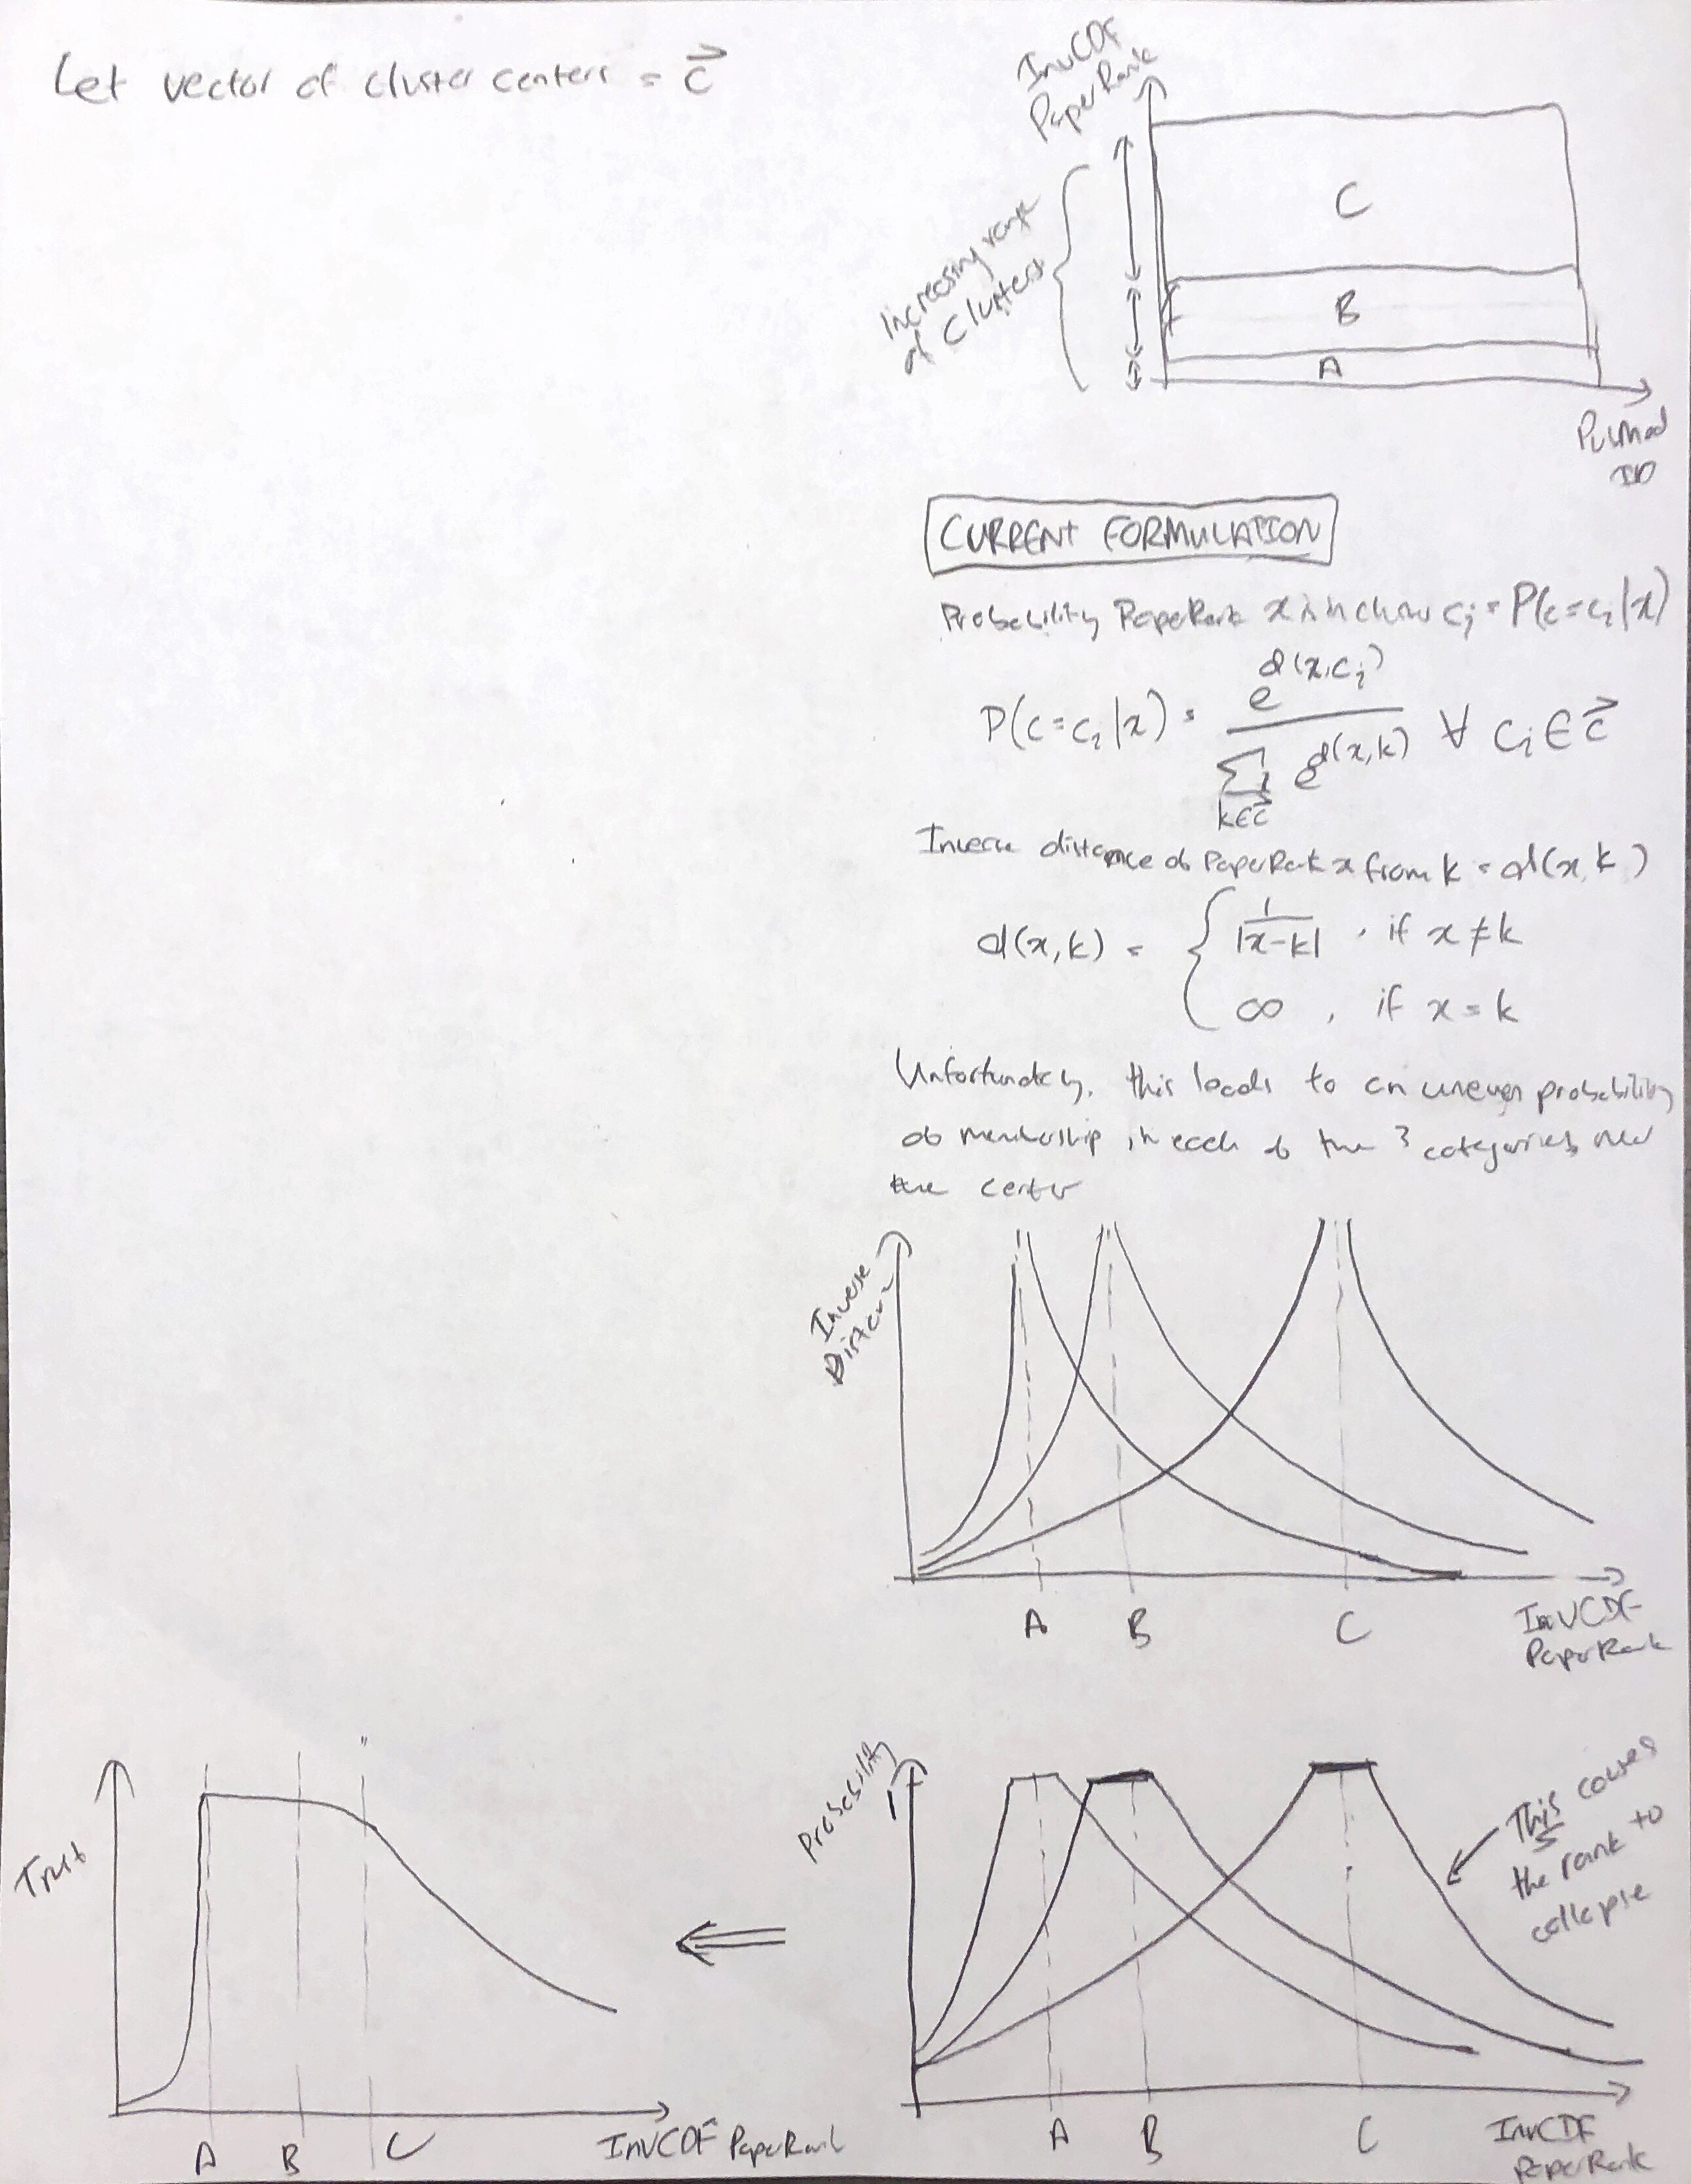 Let vector of cluster centers = c⃗
InvCDF
PaperRank
Increasing range
of clusters
C
B
A
PubMed
ID
CURRENT FORMULATION
Probability PaperRank x is in cluster cᵢ = P(c=cᵢ|x)
P(c=cᵢ|x) = e^d(x,cᵢ) / ∑_{k∈c⃗} e^d(x,k) ∀ cᵢ ∈ c⃗
Inverse distance of PaperRank x from k = d(x,k)
d(x,k) = { 1/|x-k| , if x ≠ k
∞ , if x = k
Unfortunately, this leads to an uneven probability
of membership in each of the 3 categories near
the center
Inverse
Distance
A B C
InvCDF
PaperRank
Probability
1
This causes
the rank to
collapse
A B C
InvCDF
PaperRank
Trust
A B C
InvCDF PaperRank